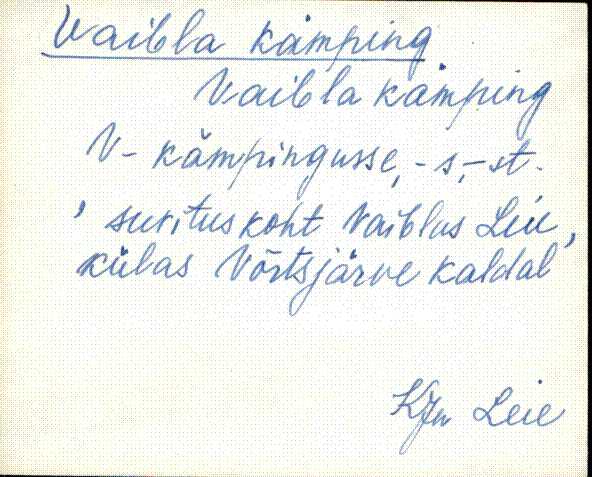 Vaibla kämping.
Vaibla kämping
V- kämpingusse, -s, -st.
, suvituskoht Vaiblas Leie,
külas Võrtsjärve kaldal
KJn Leie